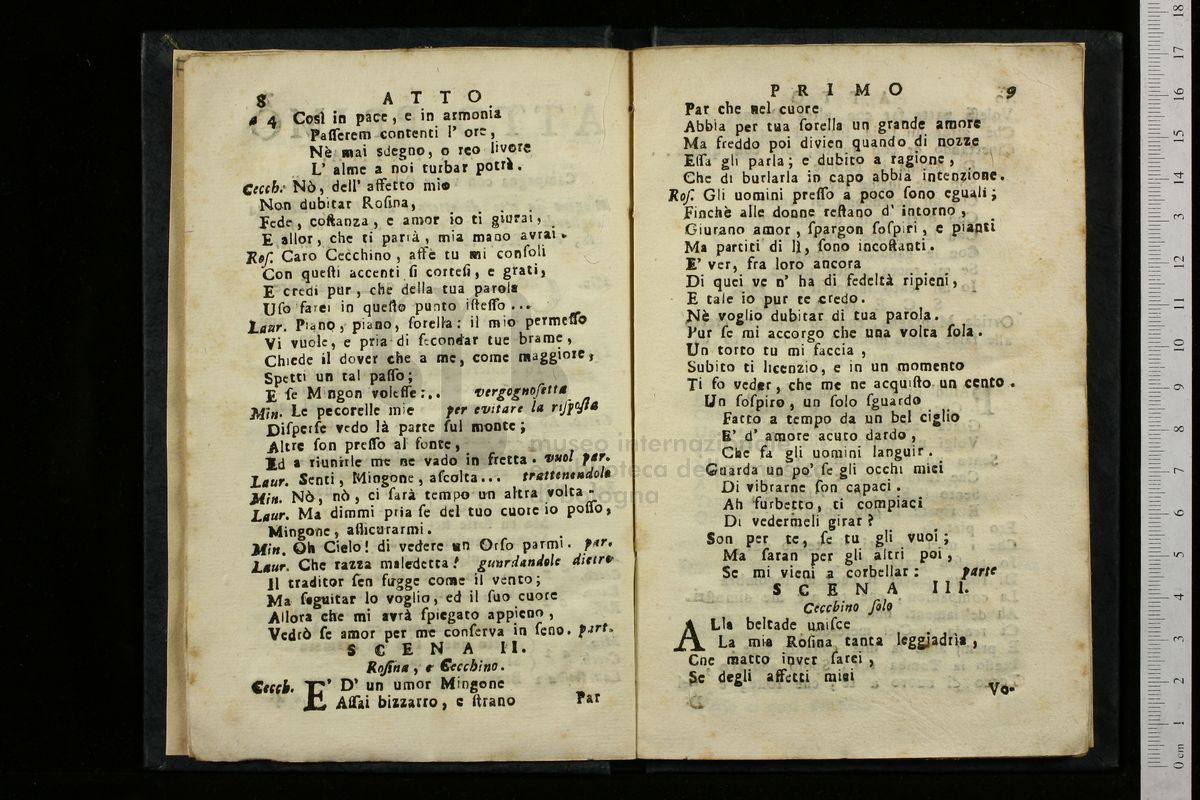 8 ATTO
a 4 Così in pace, e in armonia
Paſſerem contenti l' ore,
Nè mai sdegno, o reo livore
L' alme a noi turbar potrà.
Cecch. Nò, dell' affetto mio
Non dubitar Roſina,
Fede, coſtanza, e amor io ti giurai,
E allor, che ti parrà, mia mano avrai.
Roſ. Caro Cecchino, affè tu mi conſoli
Con queſti accenti ſi corteſi, e grati,
E credi pur, che della tua parola
Uſo farei in queſto punto iſteſſo...
Laur. Piano, piano, ſorella: il mio permeſſo
Vi vuole, e pria di ſecondar tue brame,
Chiede il dover che a me, come maggiore,
Spetti un tal paſſo;
E ſe Mingon voleſſe:.. vergognoſetta
Min. Le pecorelle mie per evitare la riſpoſta
Diſperſe vedo là parte ſul monte;
Altre ſon preſſo al fonte,
Ed a riunirle me ne vado in fretta. vuol par.
Laur. Senti, Mingone, aſcolta... trattenendolo
Min. Nò, nò, ci ſarà tempo un altra volta.
Laur. Ma dimmi pria ſe del tuo cuore io poſſo,
Mingone, aſſicurarmi.
Min. Oh Cielo! di vedere un Orſo parmi. par.
Laur. Che razza maledetta! guardandole dietro
Il traditor ſen fugge come il vento;
Ma ſeguitar lo voglio, ed il ſuo cuore
Allora che mi avrà ſpiegato appieno,
Vedrò ſe amor per me conſerva in ſeno. part.
SCENA II.
Roſina, e Cecchino.
Cecch. E' D' un umor Mingone
Aſſai bizzarro, e ſtrano
Par
PRIMO 9
Par che nel cuore
Abbia per tua ſorella un grande amore
Ma freddo poi divien quando di nozze
Eſſa gli parla; e dubito a ragione,
Che di burlarla in capo abbia intenzione.
Roſ. Gli uomini preſſo a poco ſono eguali;
Finchè alle donne reſtano d' intorno,
Giurano amor, ſpargon ſoſpiri, e pianti
Ma partiti di lì, ſono incoſtanti.
E' ver, fra loro ancora
Di quei ve n' ha di fedeltà ripieni,
E tale io pur te credo.
Nè voglio dubitar di tua parola.
Pur ſe mi accorgo che una volta ſola.
Un torto tu mi faccia,
Subito ti licenzio, e in un momento
Ti fo veder, che me ne acquiſto un cento.
Un ſoſpiro, un ſolo ſguardo
Fatto a tempo da un bel ciglio
E' d' amore acuto dardo,
Che fa gli uomini languir.
Guarda un po' ſe gli occhi miei
Di vibrarne ſon capaci.
Ah furbetto, ti compiaci
Di vedermeli girar?
Son per te, ſe tu gli vuoi;
Ma ſaran per gli altri poi,
Se mi vieni a corbellar: parte
SCENA III.
Cecchino ſolo
ALla beltade uniſce
La mia Roſina tanta leggiadria,
Che matto inver ſarei,
Se degli affetti miei
Vo-
museo internazionale
e biblioteca della musica
di bologna
0 cm 1 2 3 4 5 6 7 8 9 10 11 12 13 14 15 16 17 18